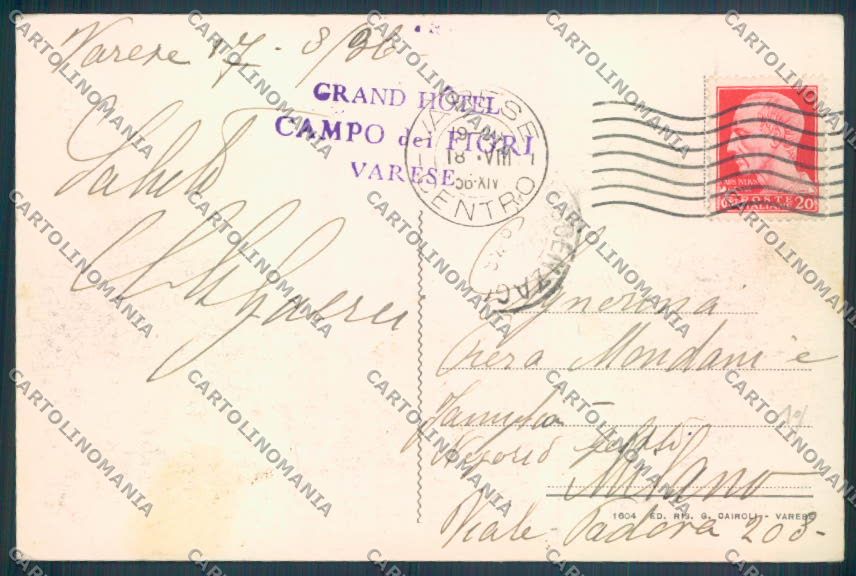 Varese 17-8/36-
GRAND HOTEL
CAMPO dei FIORI
VARESE
VARESE
18 · VIII
36·XIV
CENTRO
POSTE
20
Saluti
Signorina
Piera Mondani e
Famiglia
Milano
Viale Padova 203-
1604 ED. RIS. G. CAIROLI - VARESE
CARTOLINOMANIA